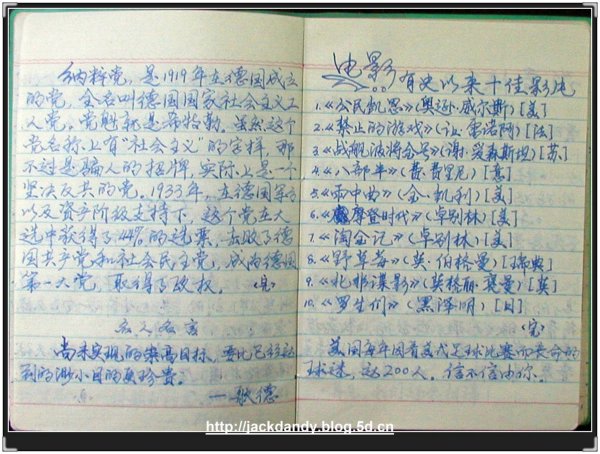 纳粹党，是1919年在德国成立
的党，全名叫德国国家社会主义工
人党。党魁就是希拍勒。虽然这个
党名称上有"社会主义"的字样，那
不过是骗人的招牌，实际上是一个
坚决反共的党。1933年，在德国军方
以及资产阶级支持下，这个党在大
选中获得了44%的选票，击败了德
国共产党和社会民主党，成为德国
第一大党，取得了政权。
名人名言
尚未实现的崇高目标，要比已经达
到的渺小目的更珍贵。
—歌德
电影
有史以来十佳影片
1.《公民凯恩》(奥逊·威尔斯)[美]
2.《禁止的游戏》(让·雷诺阿)[法]
3.《战舰波将金号》(谢·爱森斯坦)[苏]
4.《八部半》(费·费里尼)[意]
5.《雨中曲》(金·凯利)[美]
6.《摩登时代》(卓别林)[美]
7.《淘金记》(卓别林)[美]
8.《野草莓》(英·伯格曼)[瑞典]
9.《北非谍影》(英格丽·褒曼)[英]
10.《罗生门》(黑泽明)[日]
(完)
美国每年因看美式足球比赛而丧命的
球迷，达200人。信不信由你。
http://jackdandy.blog.5d.cn